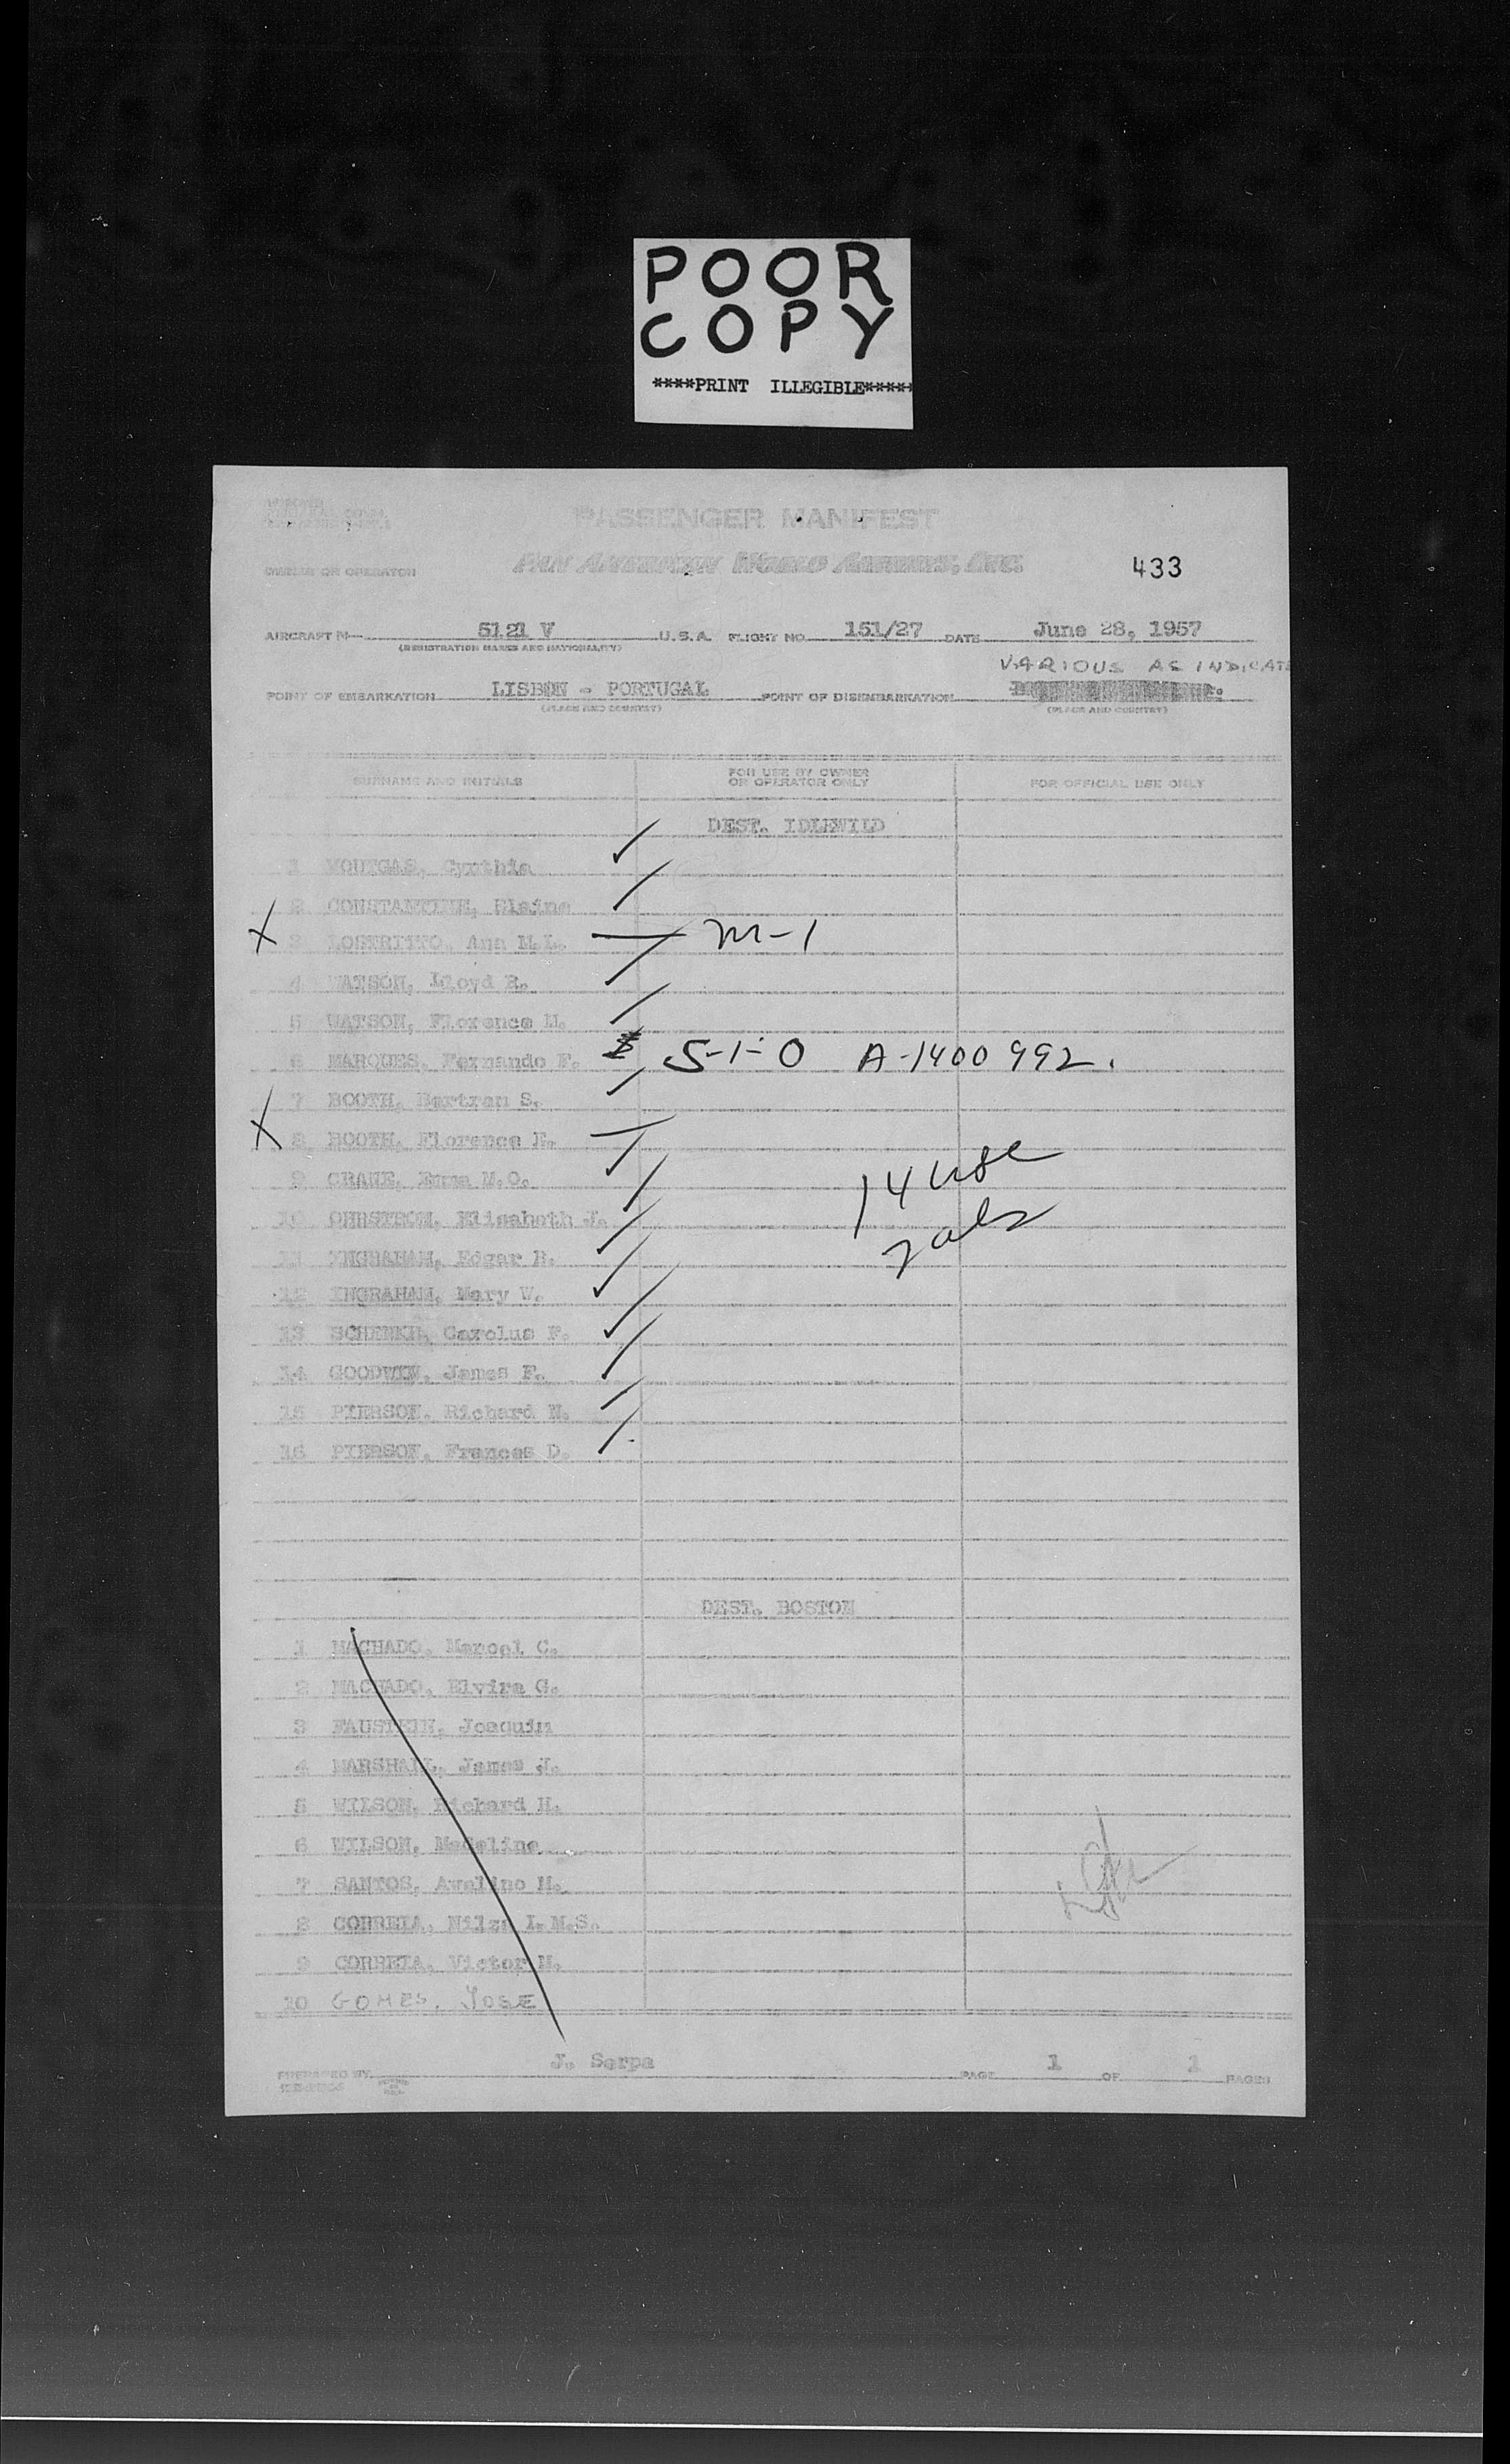 POOR
COPY
****PRINT ILLEGIBLE*****
PASSENGER MANIFEST
OWNER OR OPERATOR PAN AMERICAN WORLD AIRWAYS, INC. 433
AIRCRAFT N— 5121 V U.S.A. FLIGHT NO. 151/27 DATE June 28, 1957
(REGISTRATION MARKS AND NATIONALITY)
VARIOUS AS INDICATE
POINT OF EMBARKATION LISBON - PORTUGAL POINT OF DISEMBARKATION
(PLACE AND COUNTRY) (PLACE AND COUNTRY)
SURNAME AND INITIALS FOR USE BY OWNER OR OPERATOR ONLY FOR OFFICIAL USE ONLY
DEST. IDLEWILD
1 Cynthia
2 CONSTANTINE, Elaine
X 3 LOSTRITTO, Ann M.L. M-1
4 WATSON, Lloyd R.
5 WATSON, Florence M.
6 MARQUES, Fernando F. S-1-0 A-1400992.
7 BOOTH, Bertram S.
X 8 BOOTH, Florence E.
9 CRANE, M.O.
14 USC
10 OHRSTROM, Elisabeth J.
2 als
11 YNGRAHAM, Edgar B.
12 INGRAHAM, Mary V.
13 Carolus F.
14 GOODWIN, James F.
15 PIERSON, Richard N.
16 PIERSON, Frances D.
DEST. BOSTON
1 MACHADO, Manoel C.
2 MACHADO, Elvira G.
3 Joaquim
4 MARSHALL, James J.
5 WILSON, Richard H.
6 WILSON, Madeline
7 SANTOS, Avelino M.
8 CORREIA, Nilza I.M.S.
9 CORREIA, Victor M.
10 GOMES, JOSE
PREPARED BY J. Serpa PAGE 1 OF 1 PAGES